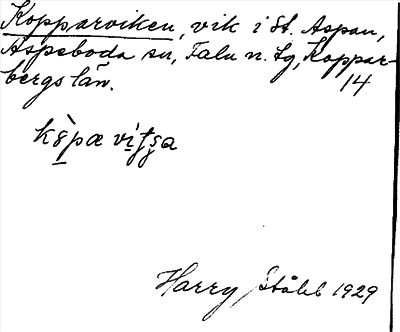 Kopparviken, vik i St. Aspan,
Aspeboda sn, Falu n. tg, Koppar-
bergs län. 14
Harry Ståhl 1929